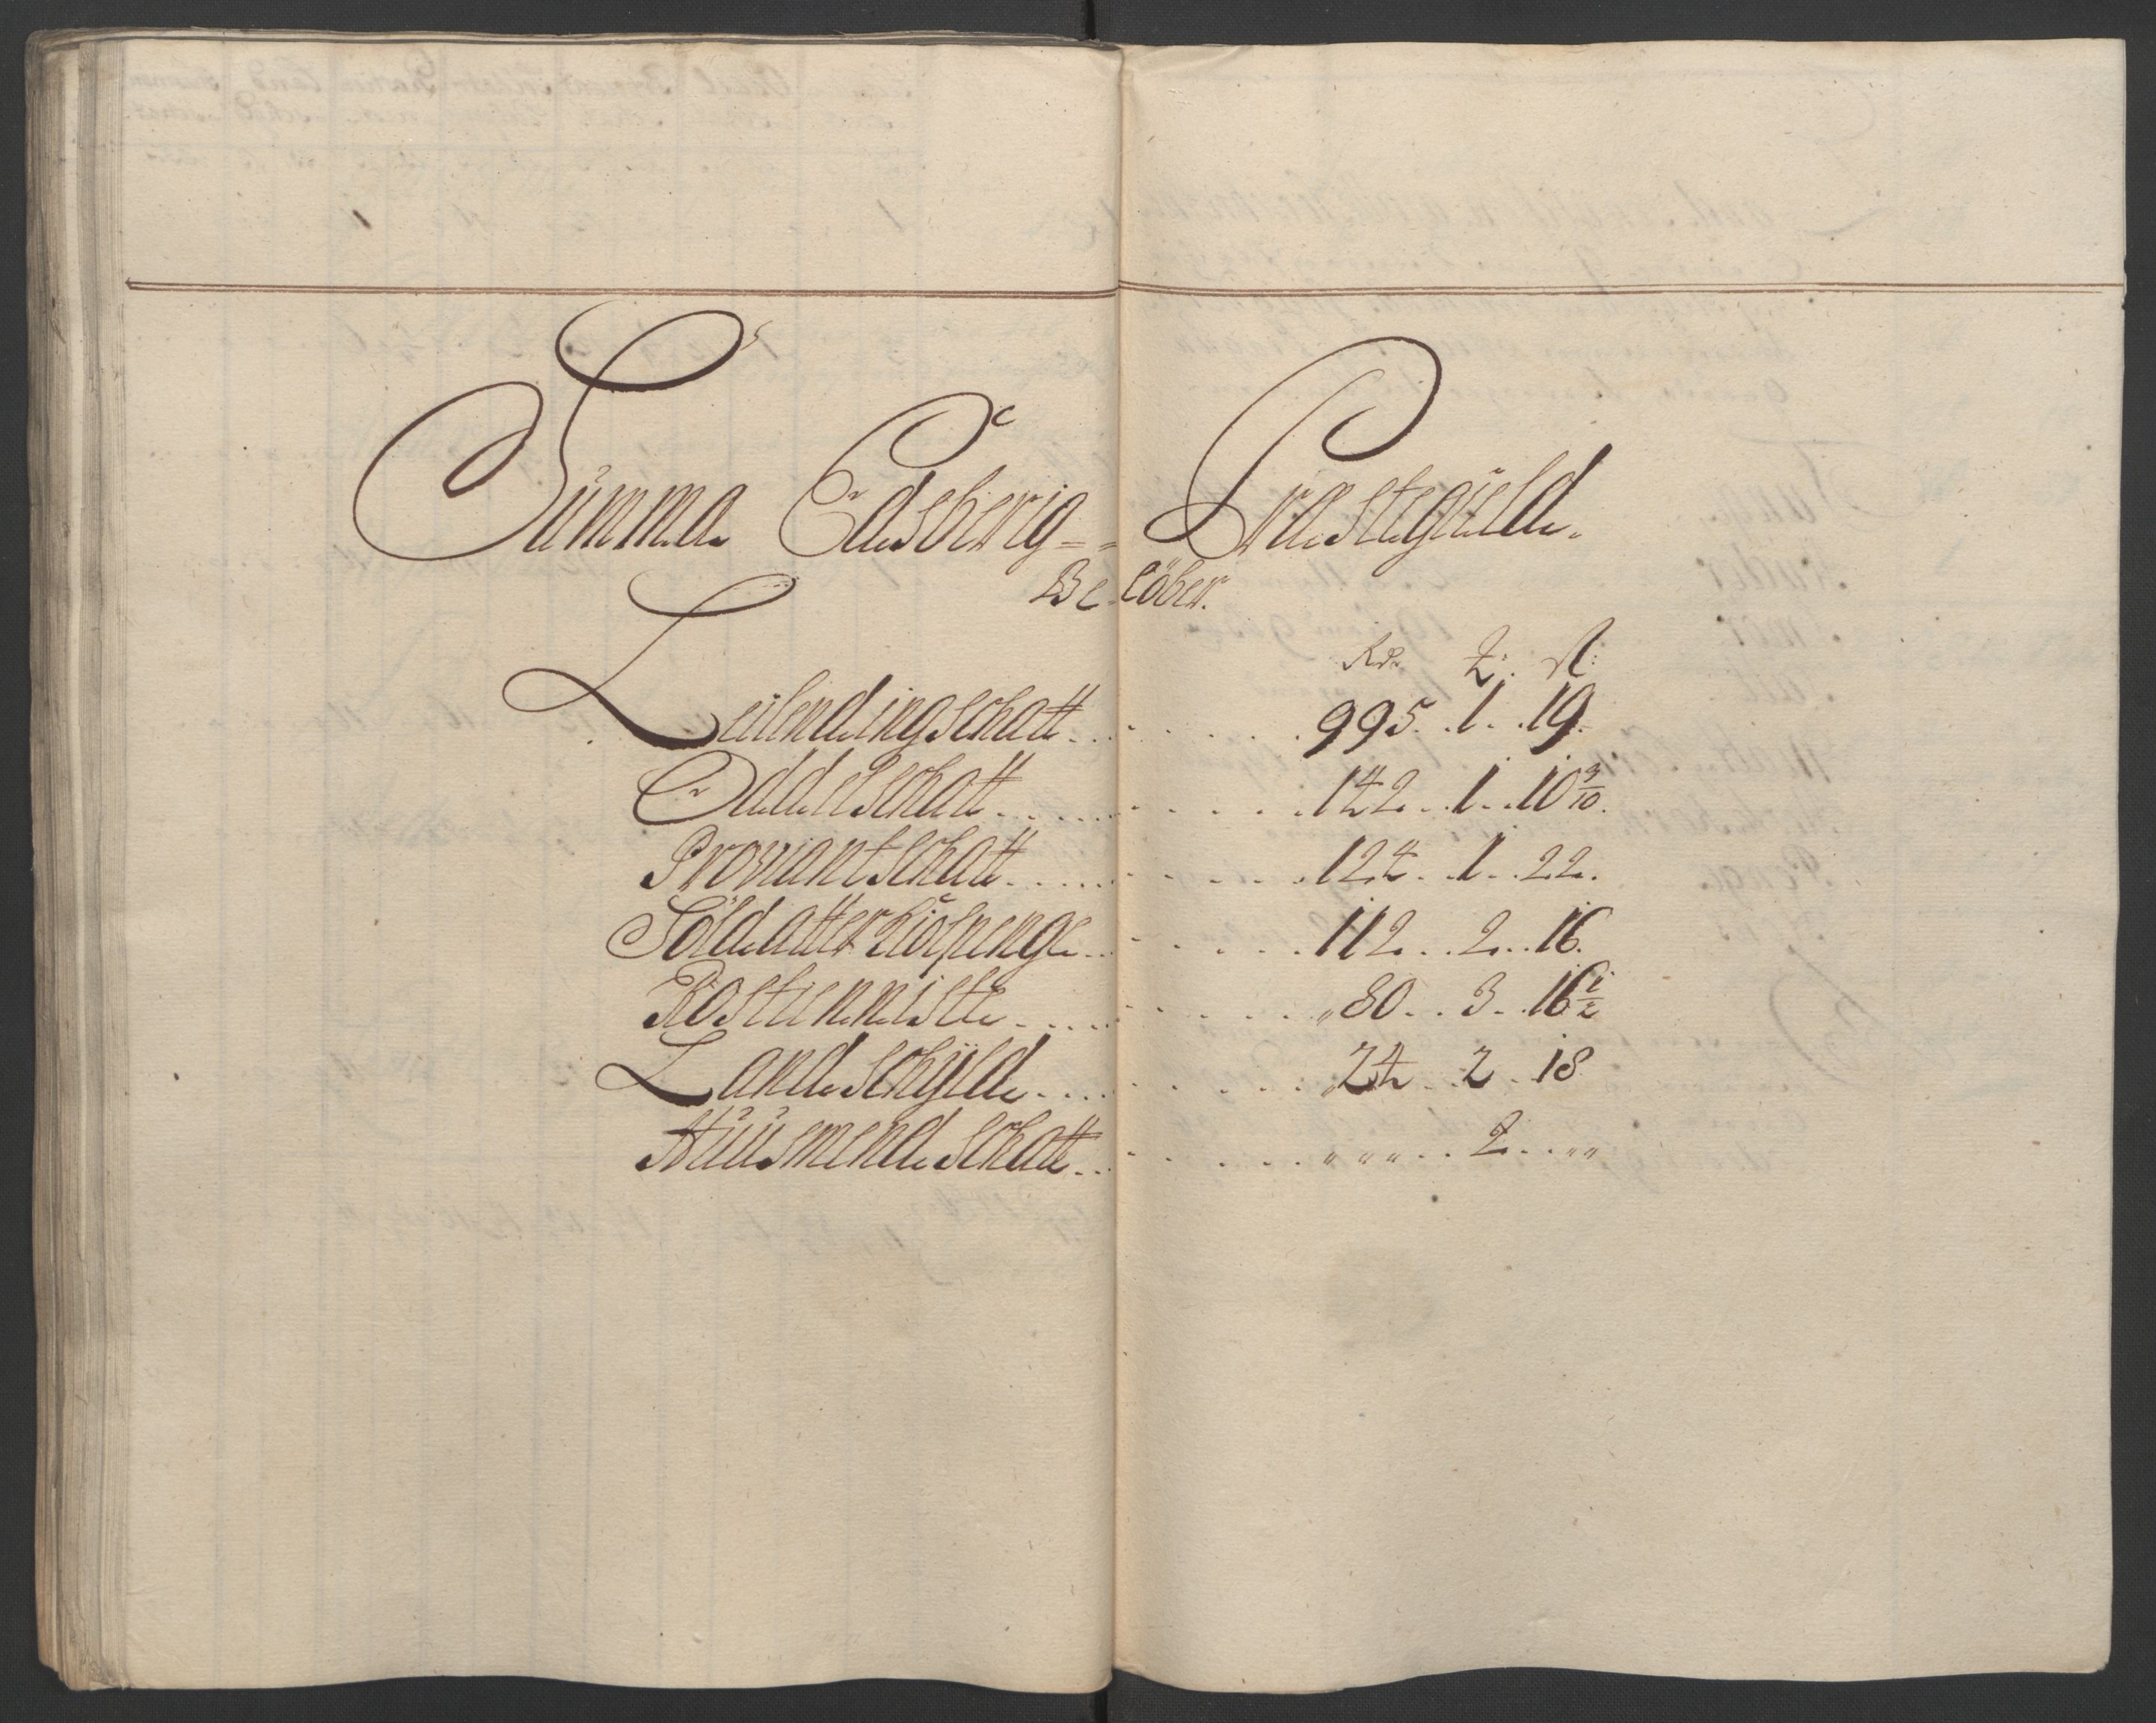 Summa Edsberig= Præstegield.
Belöber.
Rdr. ꝣ: ß:
Leilendingschatt . . . 995. 1. 19.
Oddelschatt . . . 142. 1. 10 3/10.
Proviantschatt . . . 124. 1. 22.
Soldatterhiolpenge . . . 112. 2. 16.
Rostienniste . . . 80. 3. 16 1/2
Landschyld . . . 24. 2. 18
Huusmendschatt . . . „ „ „ . 2. „ „